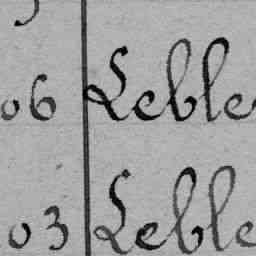 06 Leble
03 Leble